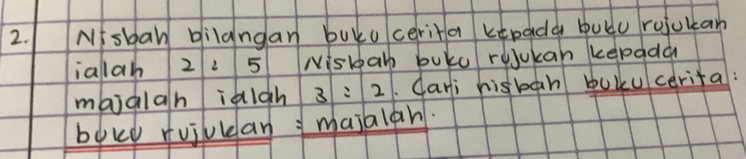 2. Nisbah bilangan buku cerita kepada buku rujukan
ialah 2 : 5 Nisbah buku rujukan kepada
majalah ialah 3 : 2. Cari nisbah buku cerita :
buku rujukan : majalah.